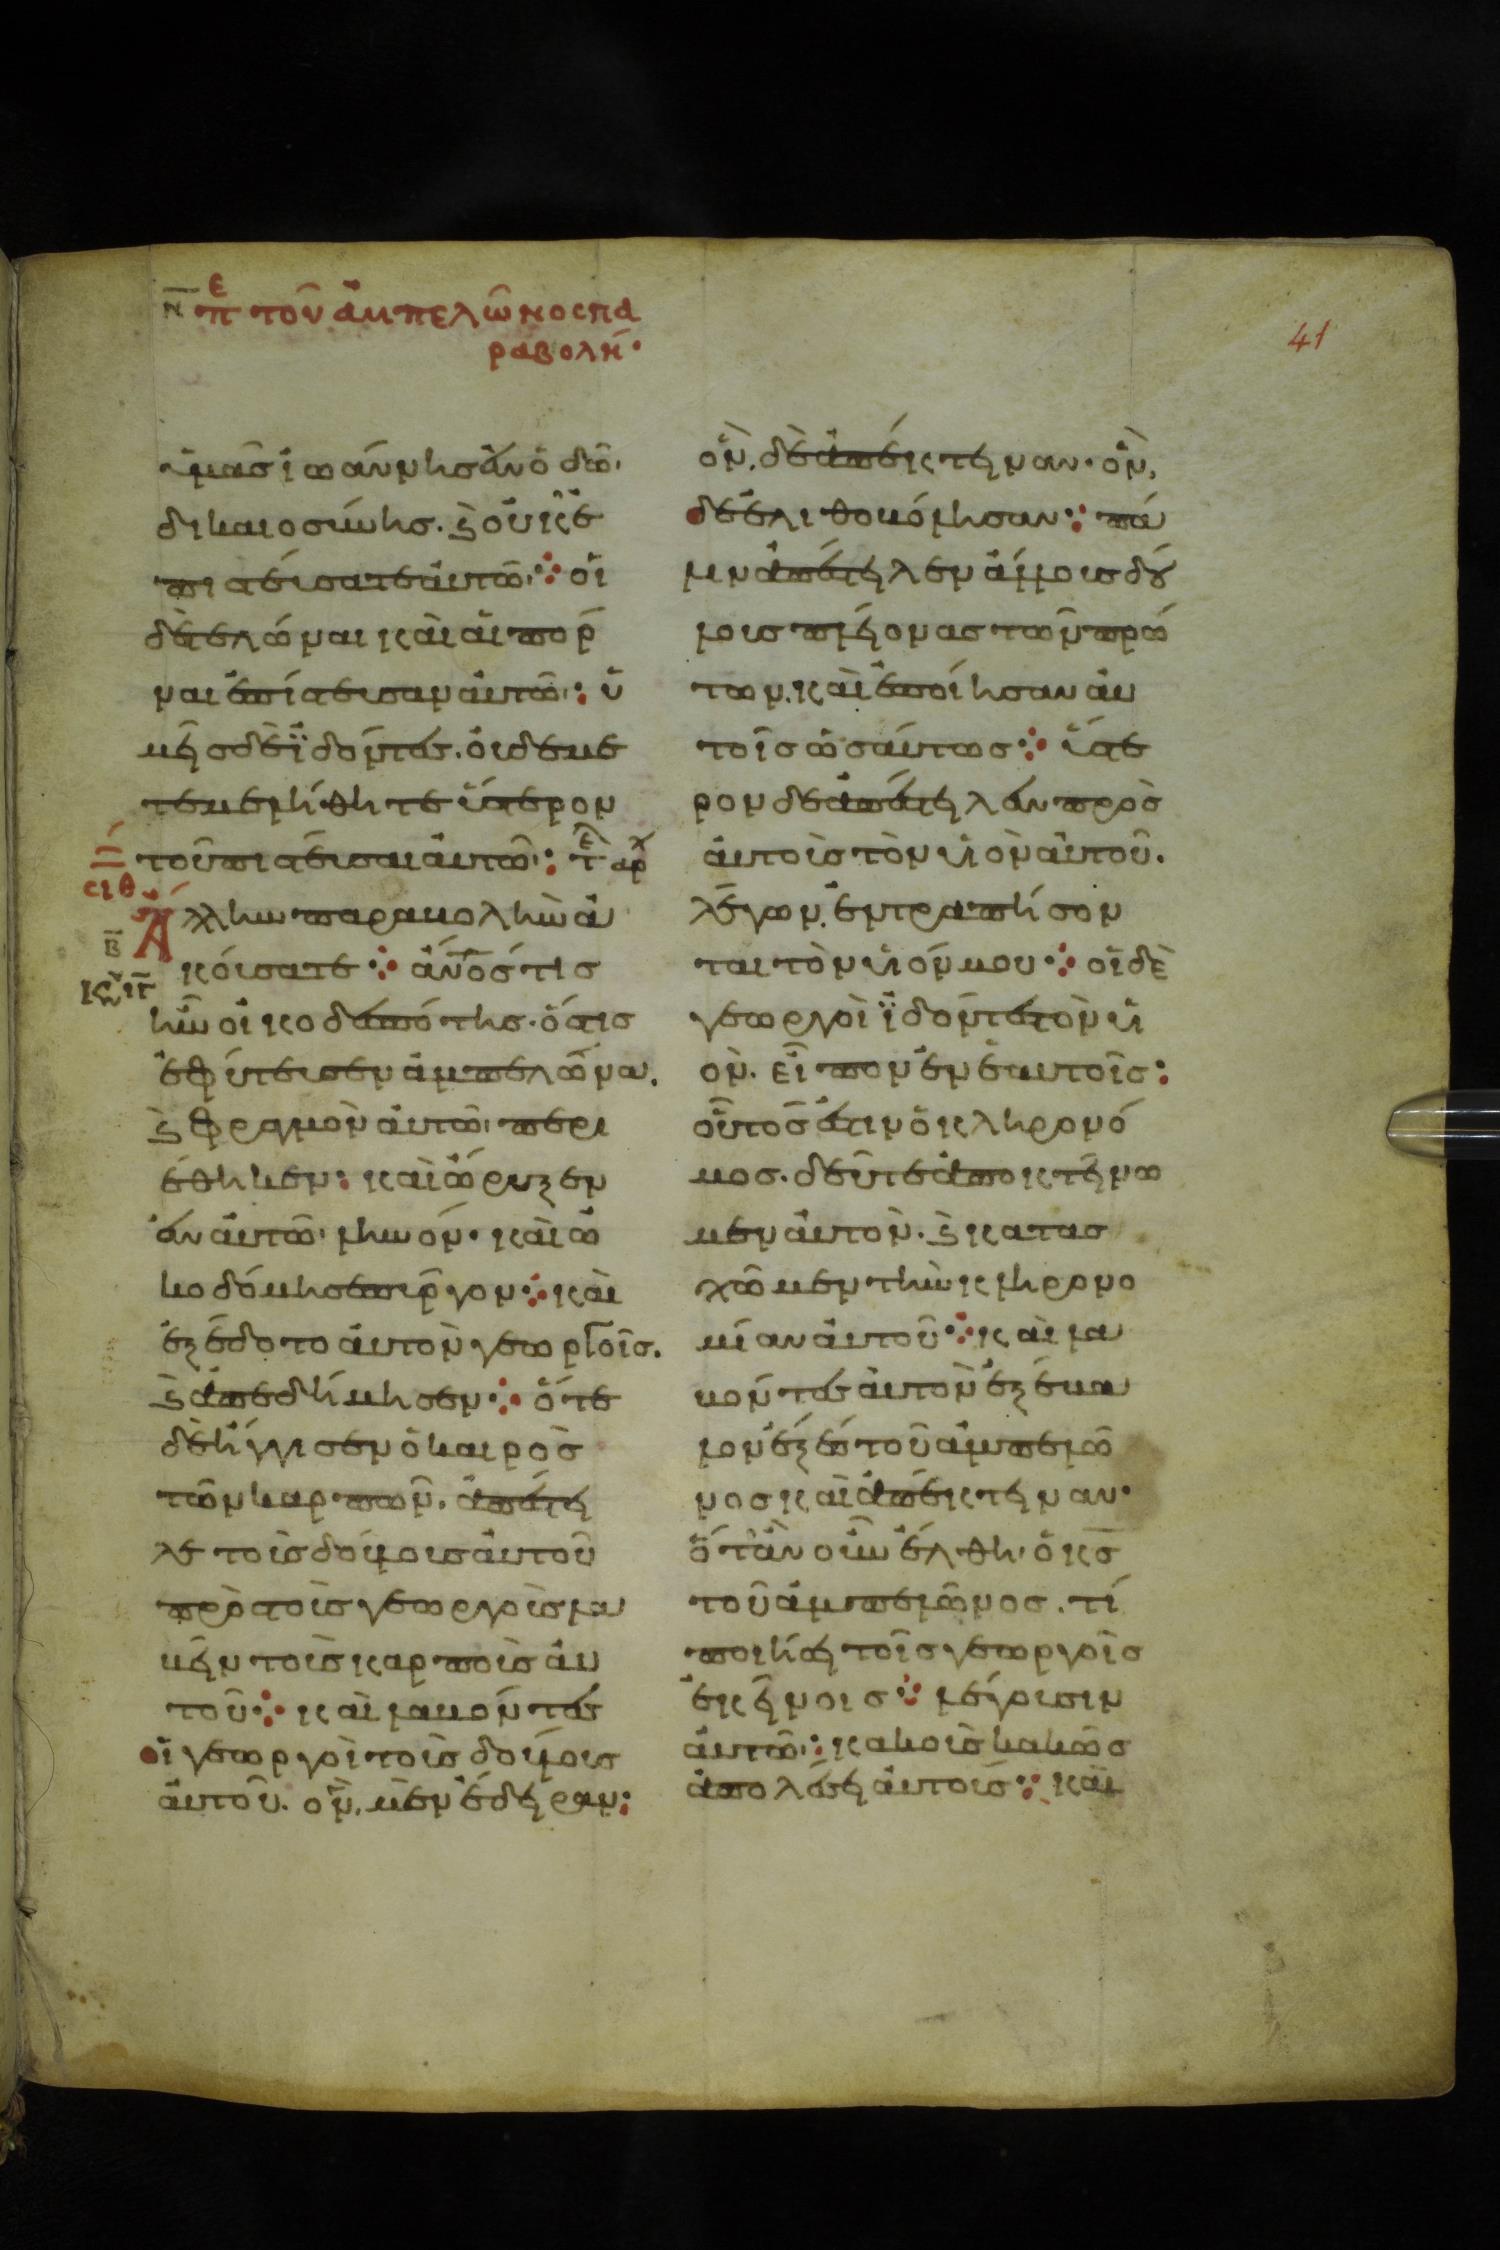 Ν πε τοῦ ἀμπελῶνος πα
ραβολή·
41
ὑμᾶσ ἰωάννησ ἐν ὁδῶ
δικαιοσύνησ. καὶ οὐκ ἐ
πιστεύσατε αὐτῶ· οἱ
δὲ τελῶναι καὶ αἱ πόρ
ναι ἐπίστευσαν αὐτῶ· ὑ
μεῖσ δὲ ἰδόντεσ. οὐ δε με
τεμελήθητε ὕστερον
τοῦ πιστεῦσαι αὐτῶ· τε αρχ
σιθ
Ἄλλην παραβολὴν ἀ
β
κούσατε· ἄνοσ τὶσ
κυ ιγ
ἦν οἰκοδεσπότησ. ὅστισ
ἐφύτευσεν ἀμπελῶνα.
καὶ φραγμὸν αὐτῶ περι
έθηκεν· καὶ ὤρυξεν
ἐν αὐτῶ ληνόν. καὶ ὠ
κοδόμησε πύργον· καὶ
ἐξέδοτο αὐτὸν γεωργοῖσ.
καὶ ἀπεδήμησεν· ὅτε
δὲ ἤγγισεν ὁ καιρὸσ
τῶν καρπῶν. ἀπέστει
λε τοὺσ δούλουσ αὐτοῦ
πρὸσ τοὺσ γεωργοὺσ λα
βεῖν τοὺσ καρποὺσ αὐ
τοῦ· καὶ λαβόντεσ
οἱ γεωργοὶ τοὺσ δούλουσ
αὐτοῦ. ὃν μὲν ἔδειραν·
ὃν δὲ ἀπέκτειναν. ὃν
δὲ ἐλιθοβόλησαν· πά
λιν ἀπέστειλεν ἄλλουσ δού
λουσ πλείονασ τῶν πρώ
των. καὶ ἐποίησαν αὐ
τοῖσ ὡσαύτωσ· ὕστε
ρον δὲ ἀπέστειλεν πρὸσ
αὐτοὺσ τὸν υἱὸν αὐτοῦ.
λέγων. ἐντραπήσον
ται τὸν υἱόν μου· οἱ δὲ
γεωργοὶ ἰδόντεσ τὸν υἱ
ὸν. εἶπον ἐν ἑαυτοῖσ·
οὗτόσ ἐστιν ὁ κληρονό
μοσ. δεῦτε ἀποκτείνω
μεν αὐτὸν. καὶ κατασ
χῶμεν τὴν κληρονο
μίαν αὐτοῦ· καὶ λα
βόντεσ αὐτὸν ἐξέβα
λον ἔξω τοῦ ἀμπελῶ
νοσ καὶ ἀπέκτειναν·
ὅταν οὖν ἔλθη ὁ κσ
τοῦ ἀμπελῶνοσ. τί
ποιήσει τοῖσ γεωργοῖσ
ἐκείνοισ· λέγουσιν
αὐτῶ· κακοὺσ κακῶσ
ἀπολέσει αὐτούσ· καὶ